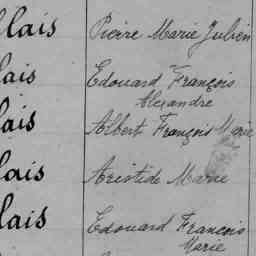 llais Pierre Marie Julien
lais Edouard François
Alexandre
lais Albert François Marie
lais Aristide Marie
lais Edouard François
Marie